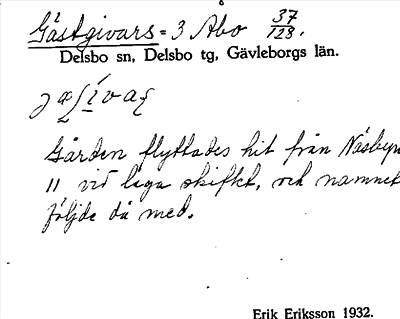 Gästgivars = 3 Åbo 37/128.
Delsbo sn, Delsbo tg, Gävleborgs län.
Gården flyttades hit från Näsbyn
11 vid laga skiftet, och namnet
följde då med.
Erik Eriksson 1932.